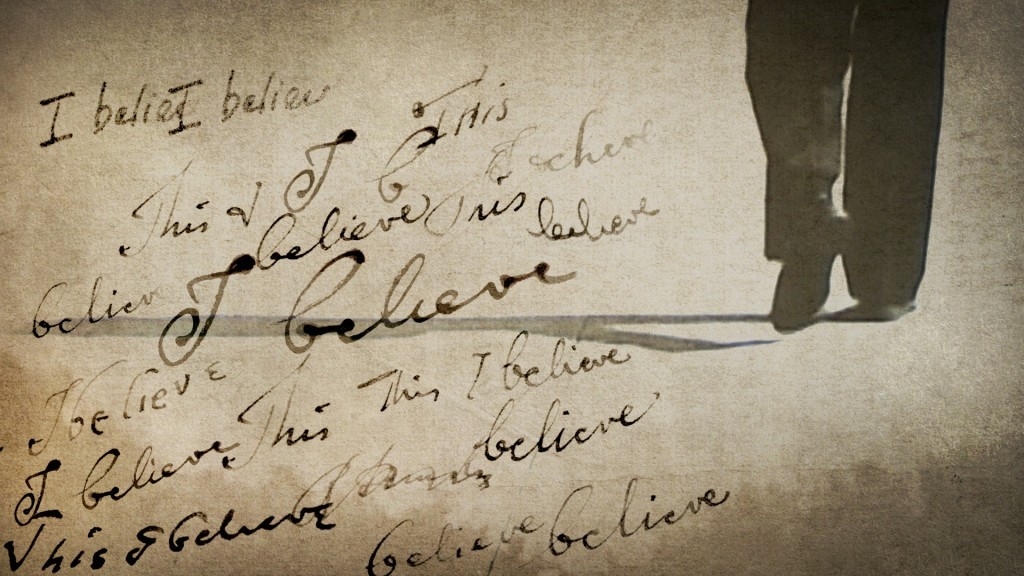 I belie I believ
This
This & I b
believe This
believe
believ
I believe
I believe
This I believe
I believe This
believe
This I believe
believe believe